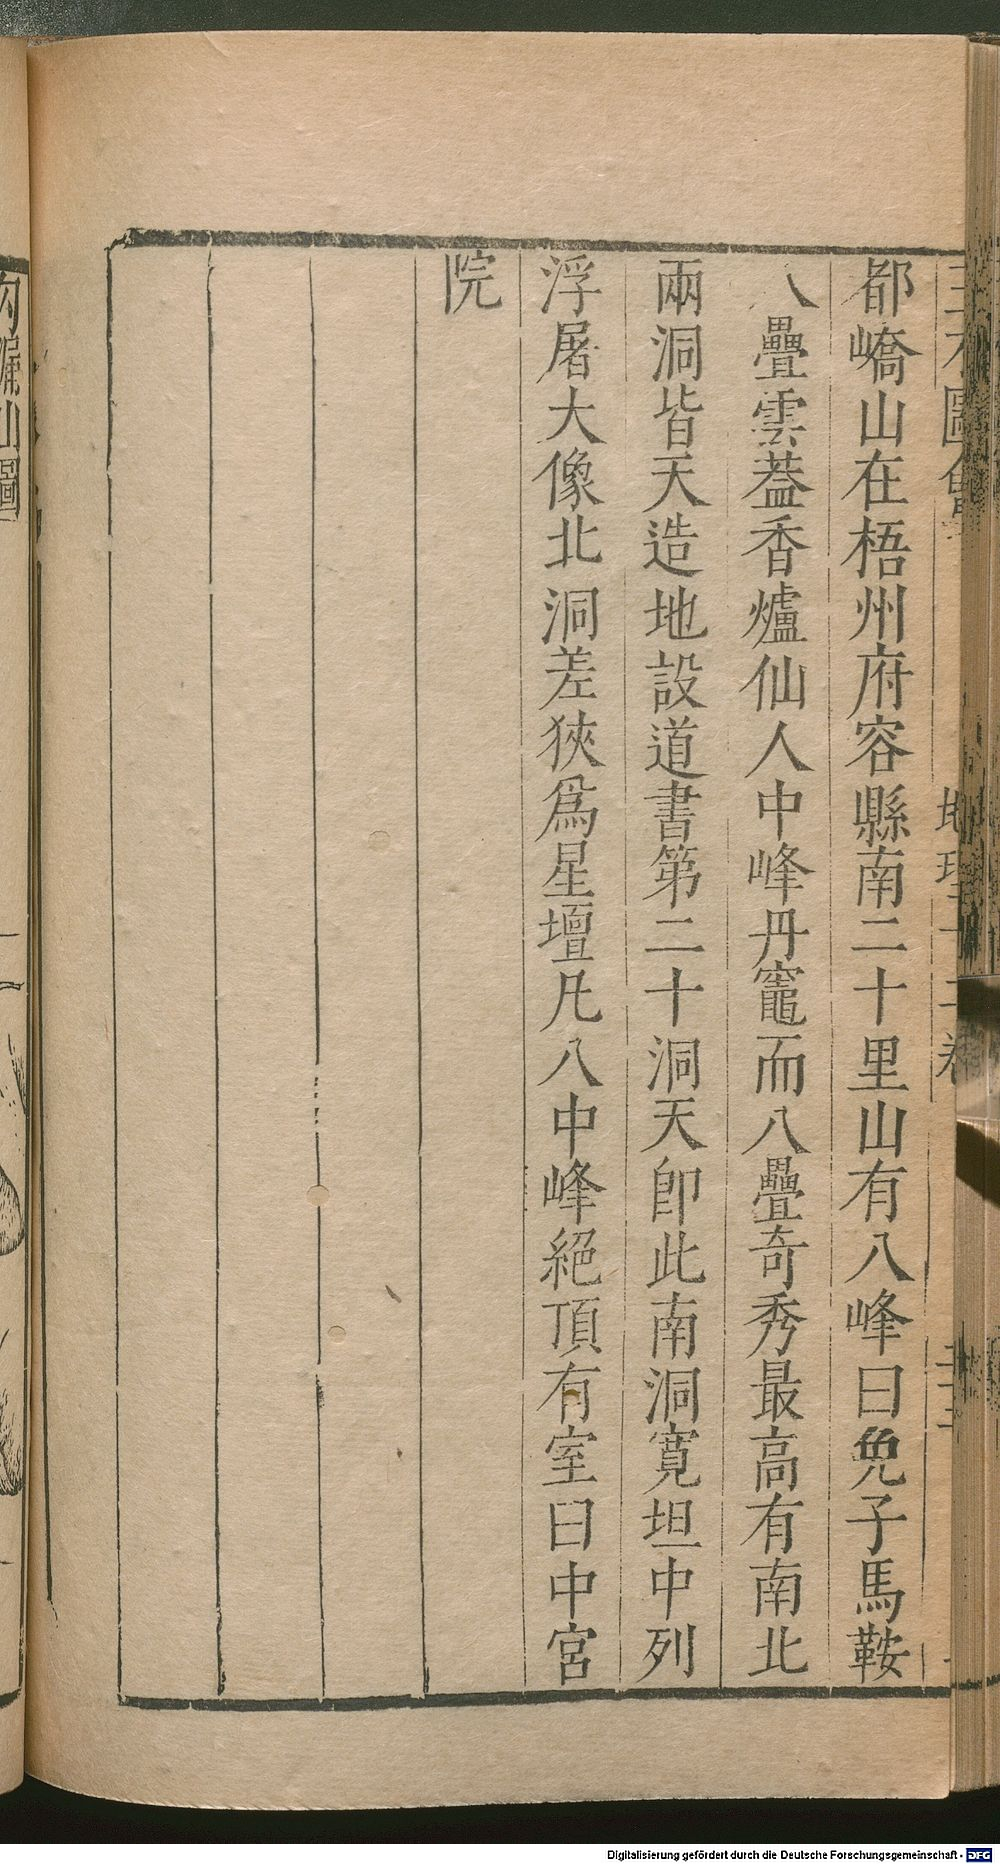 三才圖會 地理十二卷
都嶠山在梧州府容縣南二十里山有八峰曰兔子馬鞍
八疊雲葢香爐仙人中峰丹竈而八疊奇秀最高有南北
兩洞皆天造地設道書第二十洞天卽此南洞寬坦中列
浮屠大像北洞差狹爲星壇凡八中峰絕頂有室曰中宮
院
勾漏山圖
Digitalisierung gefördert durch die Deutsche Forschungsgemeinschaft - DFG